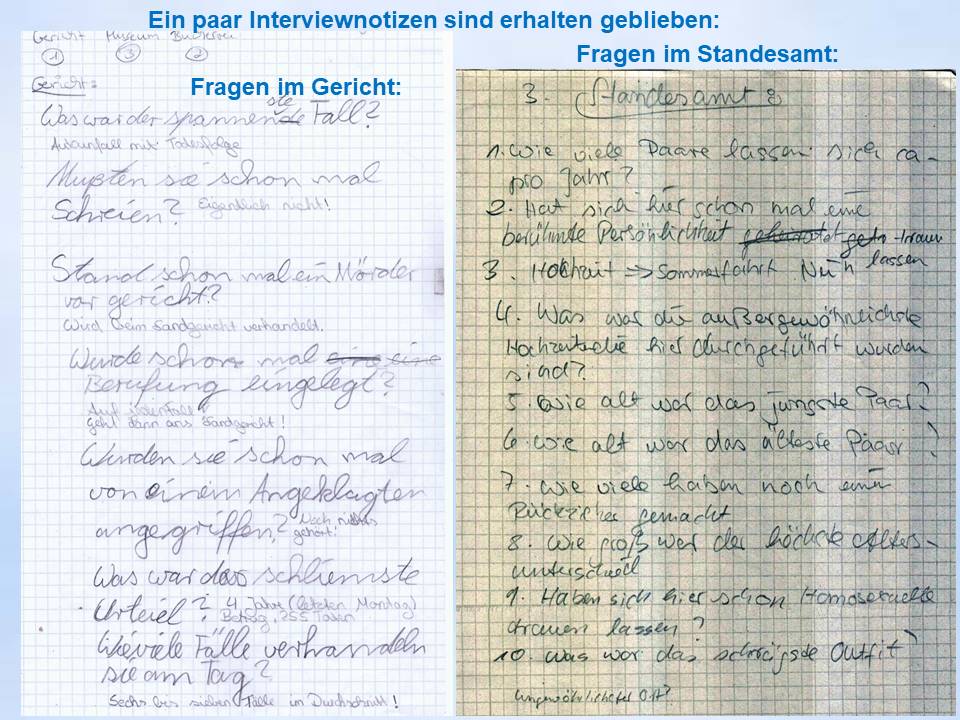 Ein paar Interviewnotizen sind erhalten geblieben:
Gericht Museum Bücherei
① ③ ②
Fragen im Gericht:
Gericht:
Was war der spannendste Fall?
Autounfall mit Todesfolge
Mußten sie schon mal
Schreien? Eigentlich nicht!
Stand schon mal ein Mörder
vor gericht?
Wird beim Landgericht verhandelt.
Wurde schon mal eine
Berufung eingelegt?
Auf jeden Fall
geht dann ans Landgericht!
Wurden sie schon mal
von einem Angeklagten
angegriffen? Noch nichts
gehört!
Was war das schliemste
Urteiel? 4 Jahre (letzten Montag)
Betrug, 255 Taten
Wieviele Fälle verhandeln
sie am Tag?
Sechs bis sieben Fälle im Durchschnitt!
Fragen im Standesamt:
3. Standesamt:
1. Wie viele Paare lassen sich ca
pro Jahr?
2. Hat sich hier schon mal eine
berühmte Persönlichkeit trauen
lassen
3. Hochzeit ⇒ Sommerfahrt
4. Was war die außergewöhnlichste
Hochzeit die hier durchgeführt wurden
sind?
5. Wie alt war das jüngste Paar?
6. Wie alt war das älteste Paar?
7. Wie viele haben noch einen
Rückzieher gemacht
8. Wie groß war der höchste Alters-
unterschied
9. Haben sich hier schon Homosexuelle
trauen lassen?
10. Was war das schrägste Outfit?
ungewöhnlichster Ort?